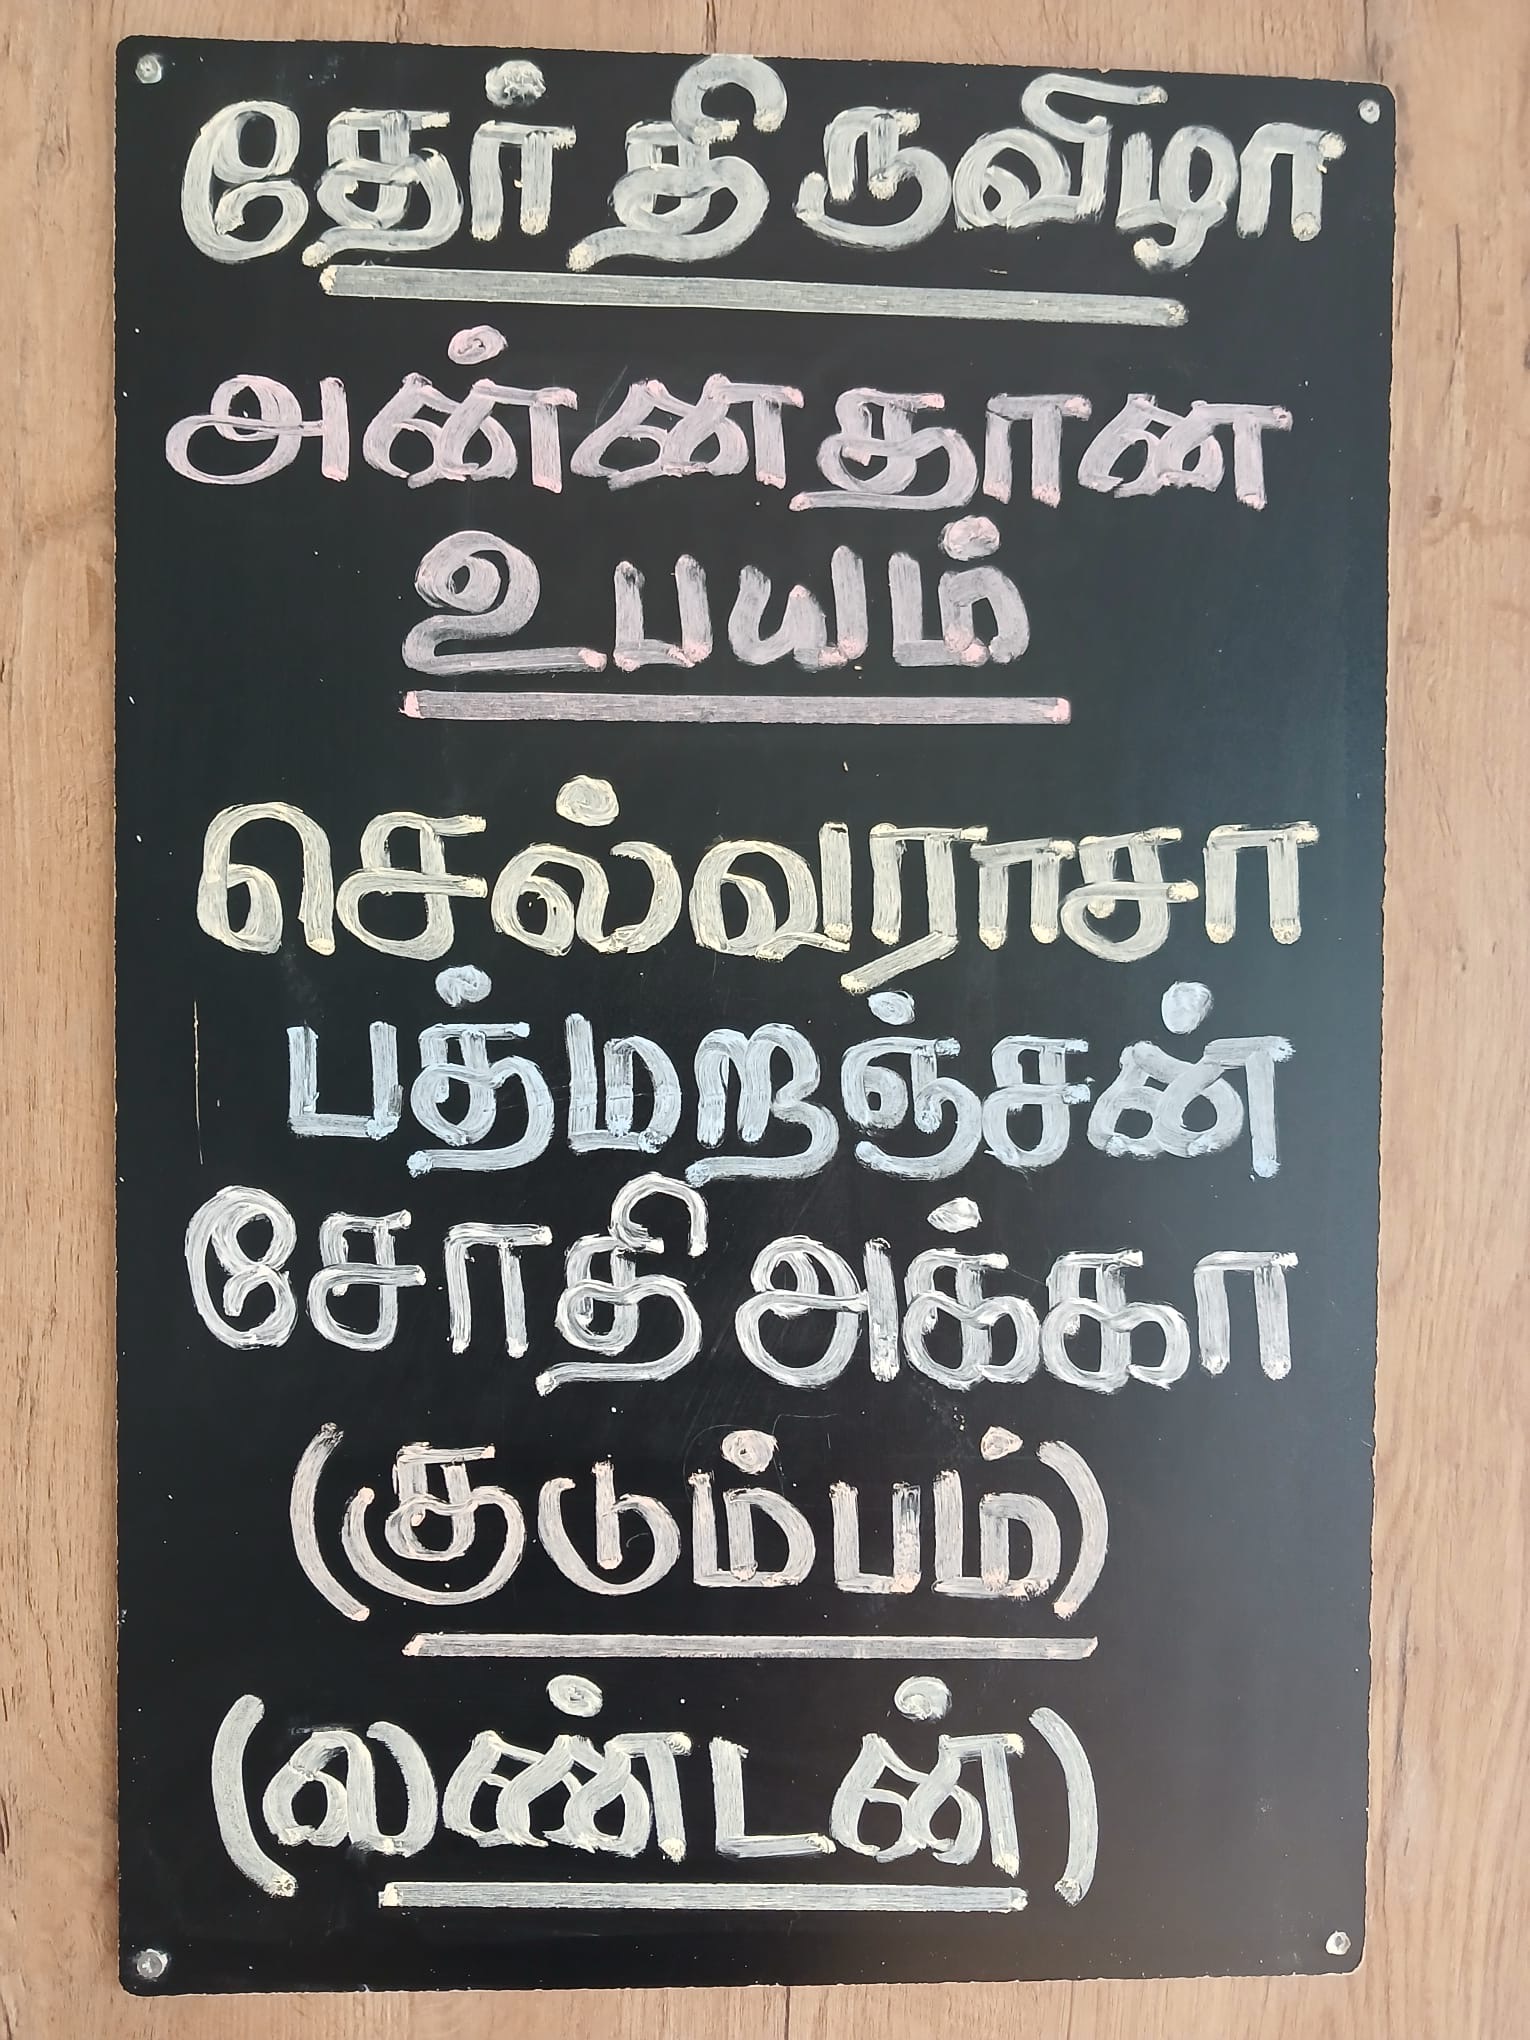 தேர் திருவிழா
அன்னதான
உபயம்
செல்வராசா
பத்மறஞ்சன்
சோதி அக்கா
(குடும்பம்)
(லண்டன்)